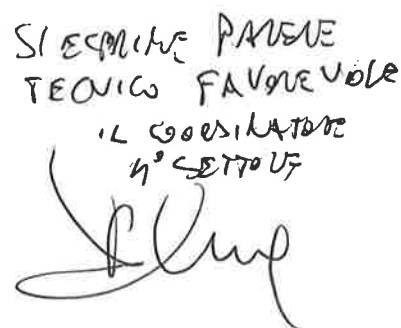 SI ESPRIME PARERE
TECNICO FAVOREVOLE
IL COORDINATORE
4° SETTORE